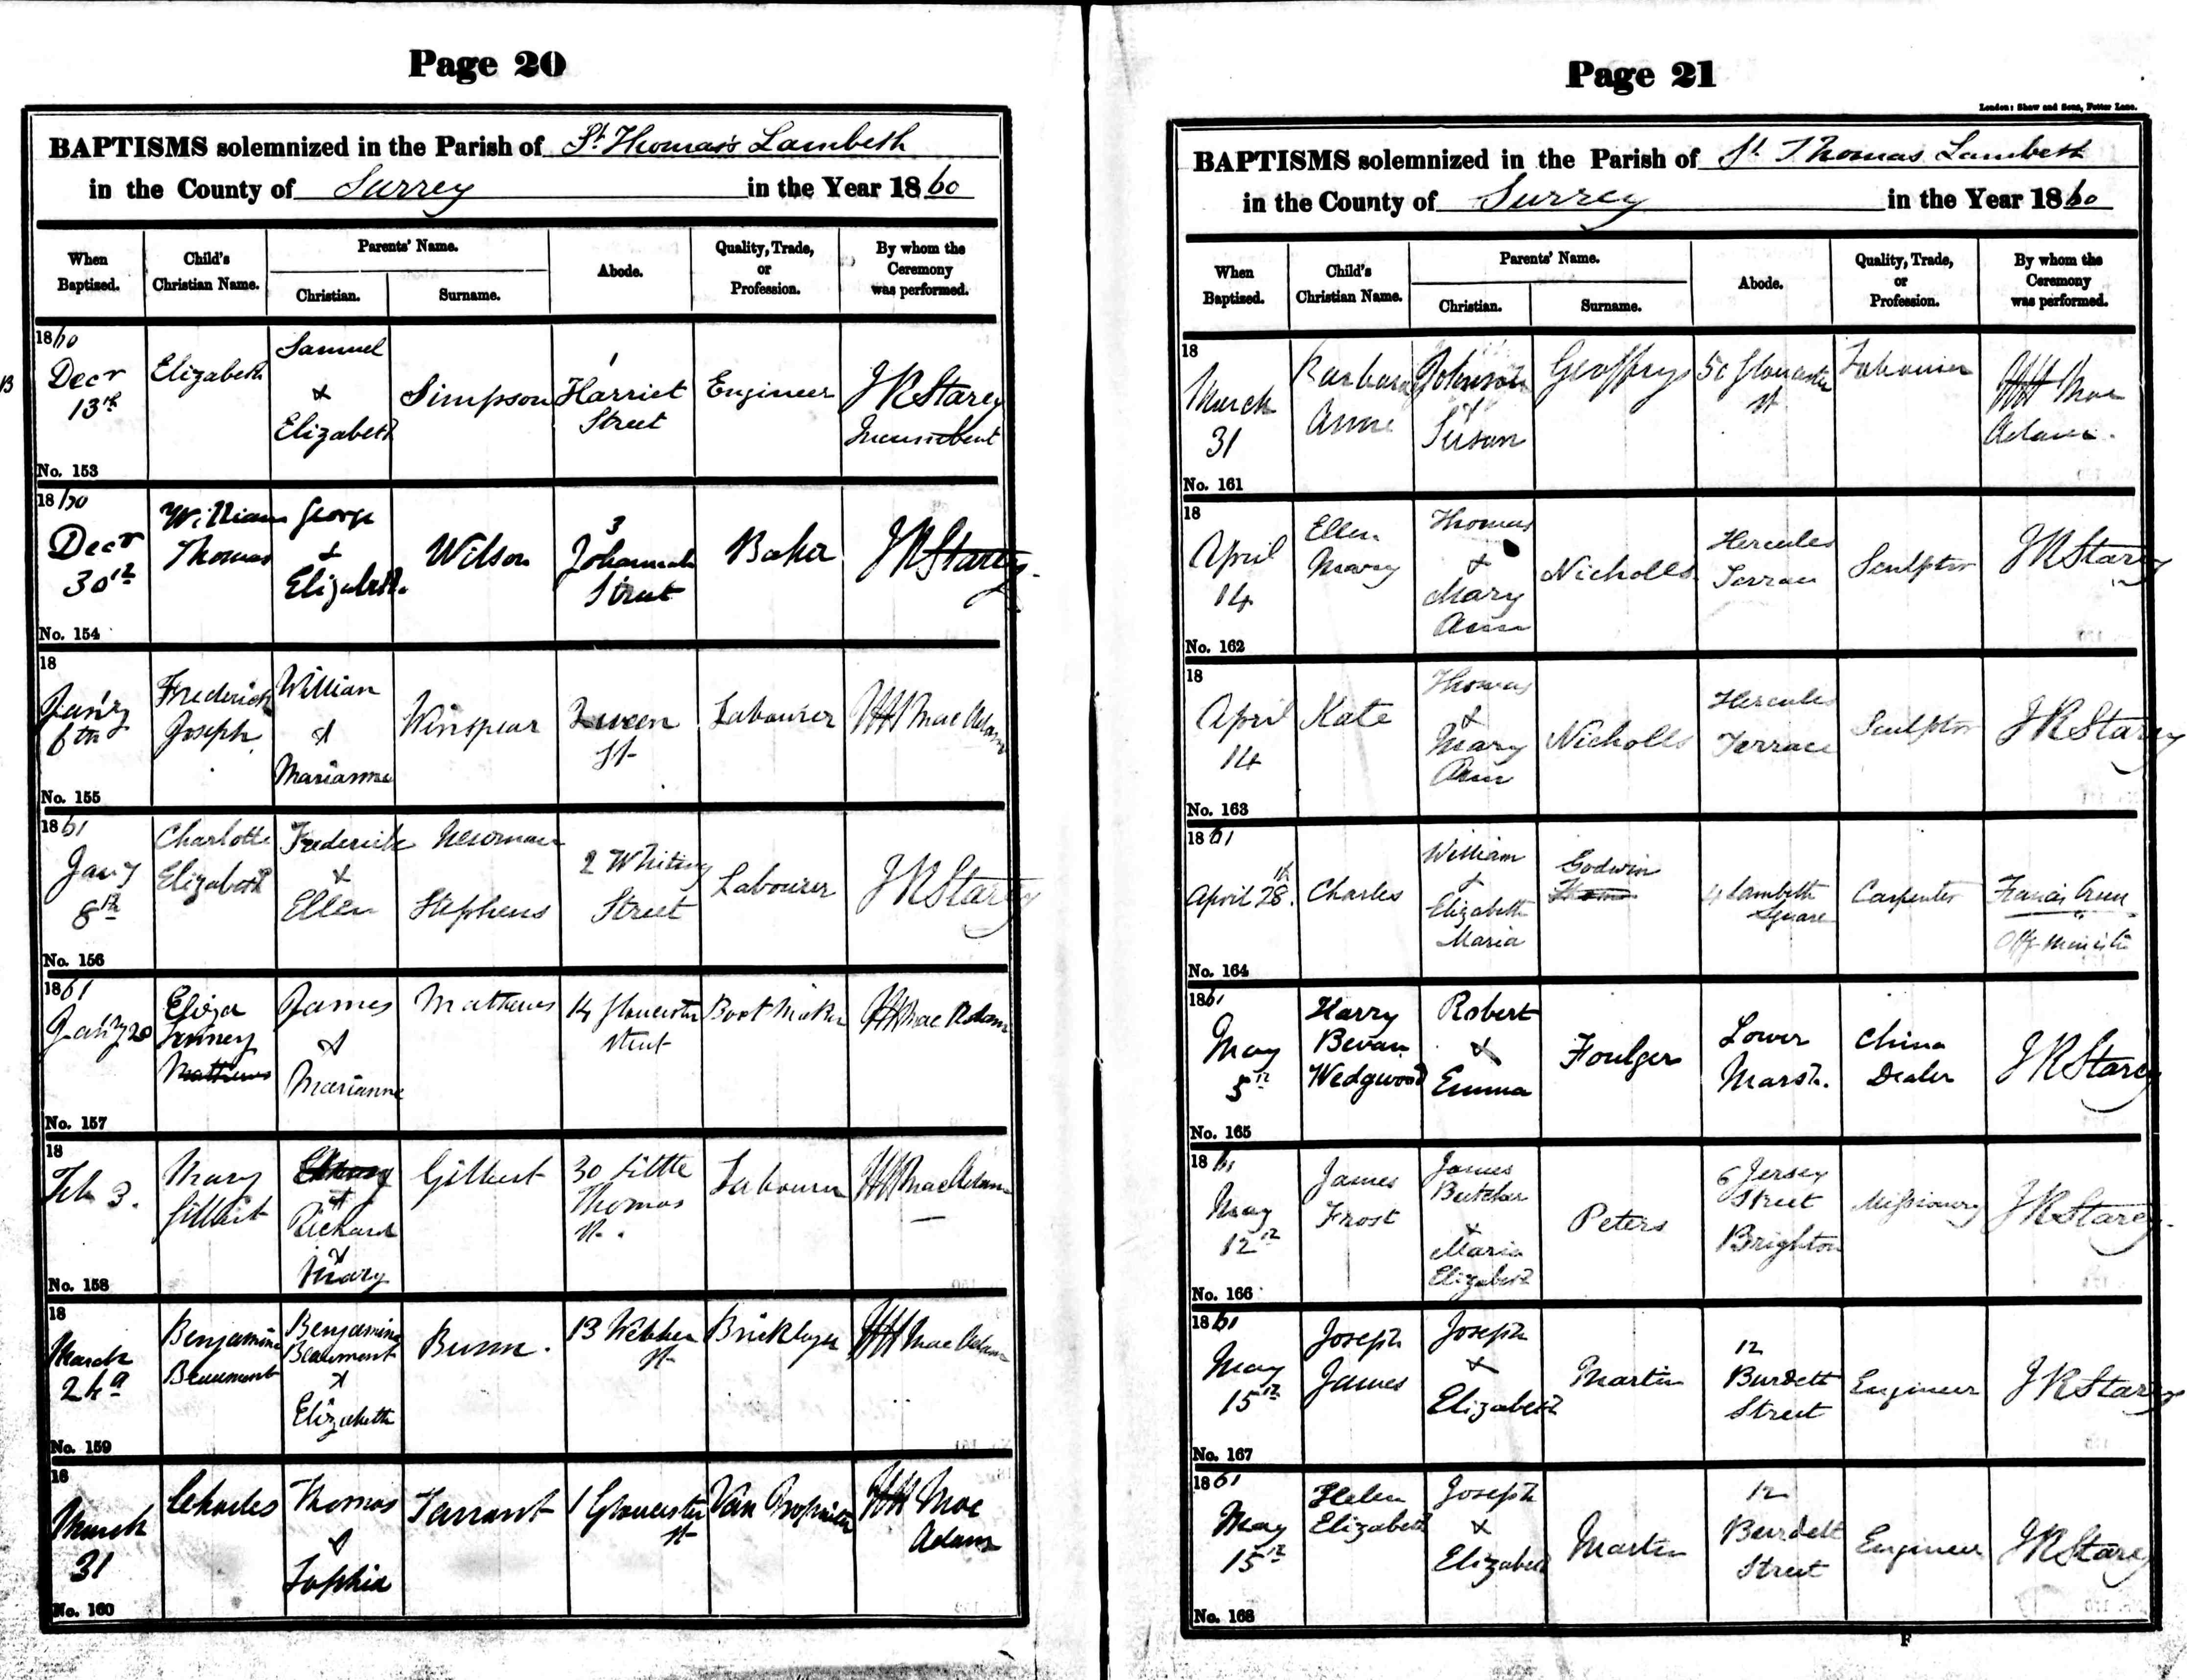 Page 20
BAPTISMS solemnized in the Parish of St Thomas's Lambeth
in the County of Surrey in the Year 1860
When Baptised.
Child's Christian Name.
Parents' Name.
Christian.
Surname.
Abode.
Quality, Trade, or Profession.
By whom the Ceremony was performed.
1860
Decr
13th
No. 153
Elizabeth
Samuel
&
Elizabeth
Simpson
1
Harriet
Street
Engineer
J R Starey
Incumbent
1860
Decr
30th
No. 154
William
Thomas
George
&
Elizabeth
Wilson
3
Johannah
Street
Baker
J R Starey
18
Jan'ry
6th
No. 155
Frederick
Joseph
William
&
Marianne
Winspear
Queen
St
Labourer
Mac Adam
1861
Jany
8th
No. 156
Charlotte
Elizabeth
Frederick
&
Ellen
Newman
Stephens
2 Whiting
Street
Labourer
J R Starey
1861
Jan'ry 20
No. 157
Eliza
Mathews
James
&
Marianne
Mathews
14 Gloucester
Street
Boot Maker
Mac Adam
18
Feb 3.
No. 158
Mary
Gilbert
&
Richard
&
Mary
Gilbert
30 Little
Thomas
St.
Labourer
Mac Adam
18
March
24
No. 159
Benjamin
Beaumont
Benjamin
Beaumont
&
Elizabeth
Bunn.
13 Webber
St
Bricklayer
Mac Adam
18
March
31
No. 160
Charles
Thomas
&
Sophia
Tarrant
1 Gloucester
St
Van Proprietor
Mac
Adam
Page 21
London: Shaw and Sons, Fetter Lane.
BAPTISMS solemnized in the Parish of St Thomas Lambeth
in the County of Surrey in the Year 1860
When Baptized.
Child's Christian Name.
Parents' Name.
Christian.
Surname.
Abode.
Quality, Trade, or Profession.
By whom the Ceremony was performed.
18
March
31
No. 161
Barbara
Anne
Johnson
&
Susan
Geoffrys
50 Gloucester
St
Labourer
Mac
Adam.
18
April
14
No. 162
Ellen
Mary
Thomas
&
Mary
Ann
Nicholls
Hercules
Terrace
Sculptor
J R Starey
18
April
14
No. 163
Kate
Thomas
&
Mary
Ann
Nicholls
Hercules
Terrace
Sculptor
J R Starey
1861
April 28th.
No. 164
Charles
William
&
Elizabeth
Maria
Godwin
4 Lambeth
Square
Carpenter
Francis
Offg Minister
1861
May
5th
No. 165
Harry
Bevan
Wedgwood
Robert
&
Emma
Foulger
Lower
Marsh.
China
Dealer
J R Starey
1861
May
12th
No. 166
James
Frost
James
Butcher
&
Maria
Elizabeth
Peters
6 Jersey
Street
Brighton
Missionary
J R Starey.
1861
May
15th
No. 167
Joseph
James
Joseph
&
Elizabeth
Martin
12
Burdett
Street
Engineer
J R Starey
1861
May
15th
No. 168
Helen
Elizabeth
Joseph
&
Elizabeth
Martin
12
Burdett
Street
Engineer
J R Starey
F